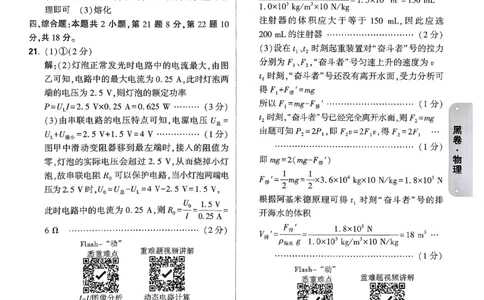 理即可 (3)熔化
四、综合题:本题共 2 小题,第 21 题 8 分,第 22 题 10
分,共 18 分。
21. (1)①(2分)
解:(2)灯泡正常发光时电路中的电流最大,由图
乙可知,电路中的最大电流为 0.25 A,此时灯泡两
端的电压为 2.5 V,则灯泡的额定功率
P=ULI=2.5 V×0.25 A=0.625 W ……… (3分)
(3)由串联电路的电压特点可知,电源电压 U总=
UL+U滑小=2.5 V+1.5 V=4 V ………… (1分)
图甲中滑动变阻器移到最左端时,接入的阻值为
零,灯泡的实际电压会超过 2.5 V,从而烧掉小灯
泡,故串联电阻 R0 可以保护电路,当小灯泡两端电
压为 2.5 V 时,U0=U总-UL=4 V-2.5 V=1.5 V,
此时电路中的电流为 0.25 A,则 R0=U0/I=1.5 V/0.25 A=
6 Ω ……………………………… (2分)
Flash-“动”
悉重难点
重难题视频讲解
I-U图像分析
动态电路计算
1.0×10³ kg/m³×10 N/kg
注射器的体积应大于等于 150 mL,因此应选
200 mL的注射器 ………………… (2分)
(3)设在 t1、t2 时刻起重装置对“奋斗者”号的拉力
分别为 F1、F2,“奋斗者”号匀速上升的速度为 v
t1 时刻,“奋斗者”号还没有离开水面,受力分析可
得 F1+F浮'=mg
所以 F1=mg-F浮' ………………… (1分)
t2 时刻,“奋斗者”号已经完全离开水面,则 F2=mg
由题可知 P2=2P1,即 F2v=2F1v,得 F2=2F1 …
…………………………………… (1分)
即 mg=2(mg-F浮')
F浮'=1/2mg=1/2×3.6×10⁴ kg×10 N/kg=1.8×10⁵ N
根据阿基米德原理可得 t1 时刻“奋斗者”号的排
开海水的体积
V排'=F浮'/ρ海水g=1.8×10⁵ N/1.0×10³ kg/m³×10 N/kg=18 m³ …
…………………………………… (1分)
Flash-“动”
悉重难点
重难题视频讲解
黑卷·物理